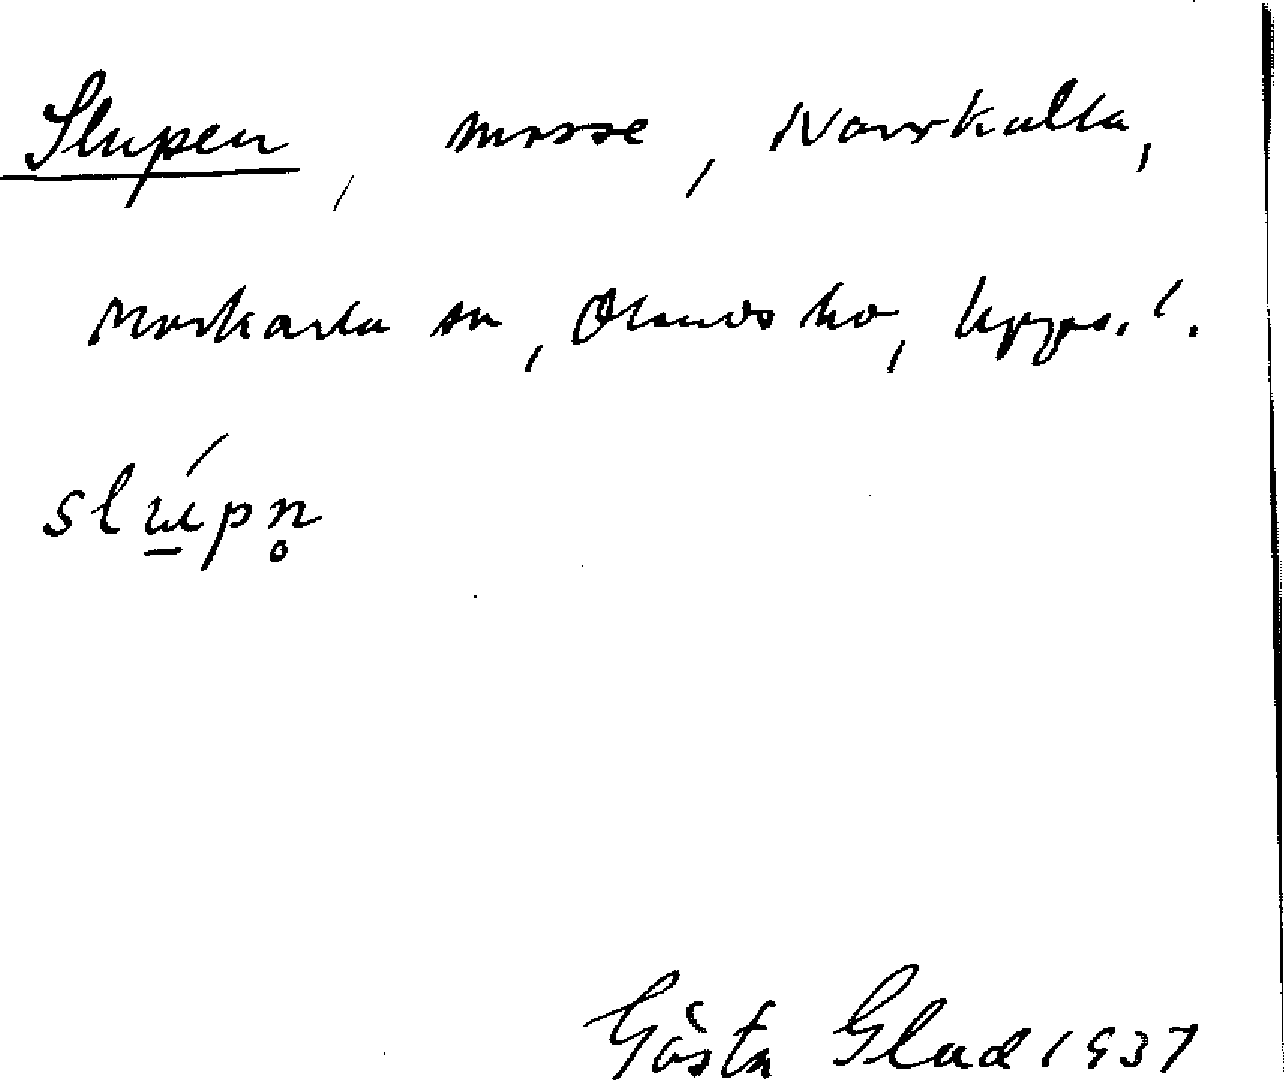 Slupen, mosse, Norrkalla,
Morkarla sn, Olands hd, Uppl.
slúpn̥
Gösta Glad 1937